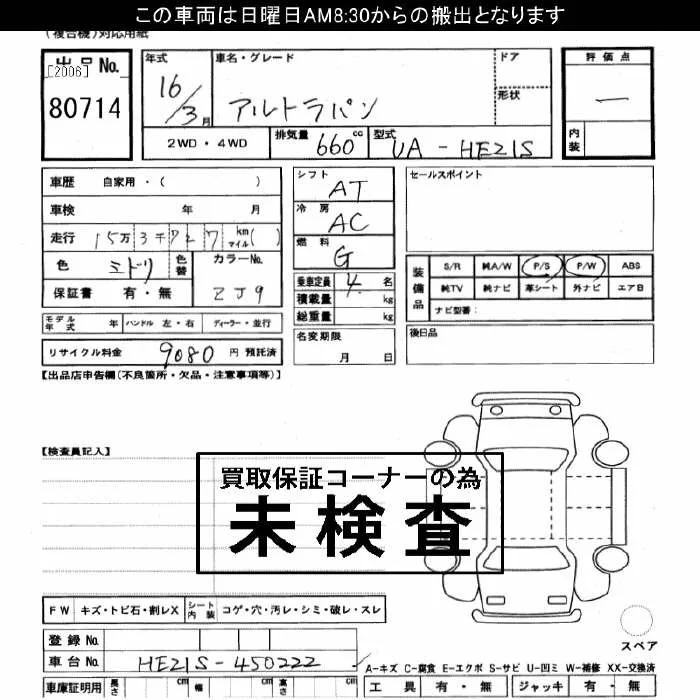 この車両は日曜日AM8:30からの搬出となります
(複合機)対応用紙
出品No.
[2006]
80714
年式
車名・グレード
ドア
評価点
16/3月
アルトラパン
形状
一
2WD・4WD
排気量 660 cc
型式 UA-HE21S
内装
車歴 自家用・( )
シフト AT
セールスポイント
車検 年 月
冷房 AC
走行 15万3千727 km マイル( )
燃料 G
色 ミドリ 色替 カラーNo.
装備品 S/R 純A/W P/S P/W ABS
保証書 有・無 ZJ9
乗車定員 4 名
純TV 純ナビ 革シート 外ナビ エアB
積載量 kg
ナビ型番:
モデル年式 年 ハンドル 左・右 ディーラー・並行
総重量 kg
後日品
リサイクル料金 9080 円 預託済
名変期限 月 日
【出品店申告欄(不良箇所・欠品・注意事項等)】
【検査員記入】
買取保証コーナーの為
未検査
FW キズ・トビ石・割レX シート内装 コゲ・穴・汚レ・シミ・破レ・スレ
スペア
登録No.
車台No. HE21S-450222
A-キズ C-腐食 E-エクボ S-サビ U-凹ミ W-補修 XX-交換済
車庫証明用 長さ cm 幅 cm 高さ cm
工具 有・無 ジャッキ 有・無